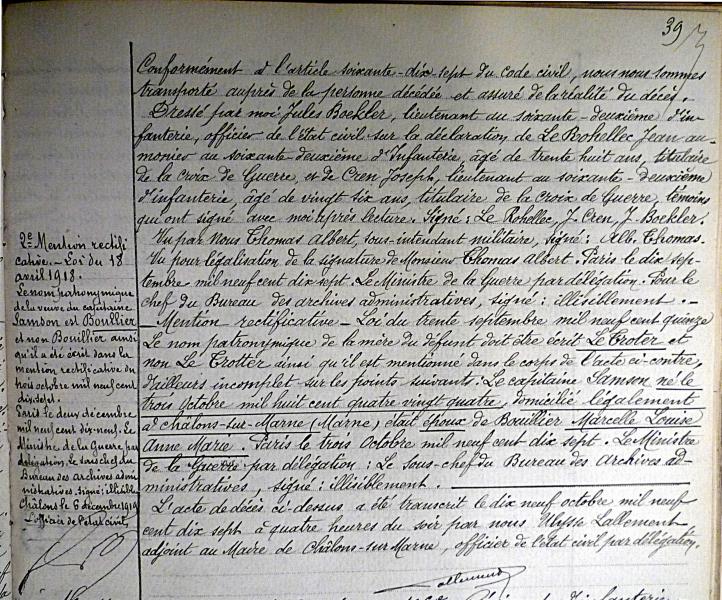 39
Conformément à l'article soixante-dix sept du code civil, nous nous sommes
transporté auprès de la personne décédée et assuré de la réalité du décès.
Dressé par moi Jules Boekler, lieutenant au soixante-deuxième d'in-
fanterie, officier de l'état civil sur la déclaration de Le Rohellec Jean au-
monier au soixante-deuxième d'Infanterie, âgé de trente huit ans, titulaire
de la croix de Guerre, et de Cren Joseph, lieutenant au soixante-deuxième
d'infanterie, âgé de vingt six ans, titulaire de la croix de Guerre, témoins
qui ont signé avec moi après lecture. Signé: Le Rohellec, J. Cren, J. Boekler.
Vu par Nous Thomas Albert, sous-intendant militaire, signé: Alb. Thomas.
Vu pour légalisation de la signature de Monsieur Thomas Albert. Paris le dix sep-
tembre mil neuf cent dix sept. Le Ministre de la Guerre par délégation. Pour le
chef du Bureau des archives administratives, signé: illisiblement.-
- Mention rectificative - Loi du trente septembre mil neuf cent quinze
Le nom patronymique de la mère du défunt doit être écrit Le Troter et
non Le Trotter ainsi qu'il est mentionné dans le corps de l'acte ci-contre,
d'ailleurs incomplet sur les points suivants. Le capitaine Samson né le
trois Octobre mil huit cent quatre vingt quatre, domicilié légalement
à Châlons-sur-Marne (Marne) était époux de Bouillier Marcelle Louise
Anne Marie. Paris le trois Octobre mil neuf cent dix sept. Le Ministre
de la Guerre par délégation: Le Sous-chef du Bureau des Archives ad-
ministratives, signé: illisiblement.
L'acte de décès ci-dessus a été transcrit le dix neuf octobre mil neuf
cent dix sept à quatre heures du soir par nous Ulysse Lallement
adjoint au Maire de Châlons-sur-Marne, officier de l'état civil par délégation.
Lallement
2e Mention rectifi
cative. - Loi du 18
avril 1918.
Le nom patronymique
de la veuve du capitaine
Samson est Boullier
et non Bouillier ainsi
qu'il a été écrit dans la
mention rectificative du
trois octobre mil neuf cent
dix sept.
Paris le deux décembre
mil neuf cent dix-neuf. Le
Ministre de la Guerre par
délégation, Le sous chef du
Bureau des Archives admi
nistratives. signé: illisible
Châlons le 6 décembre 1919
L'officier de l'état civil,